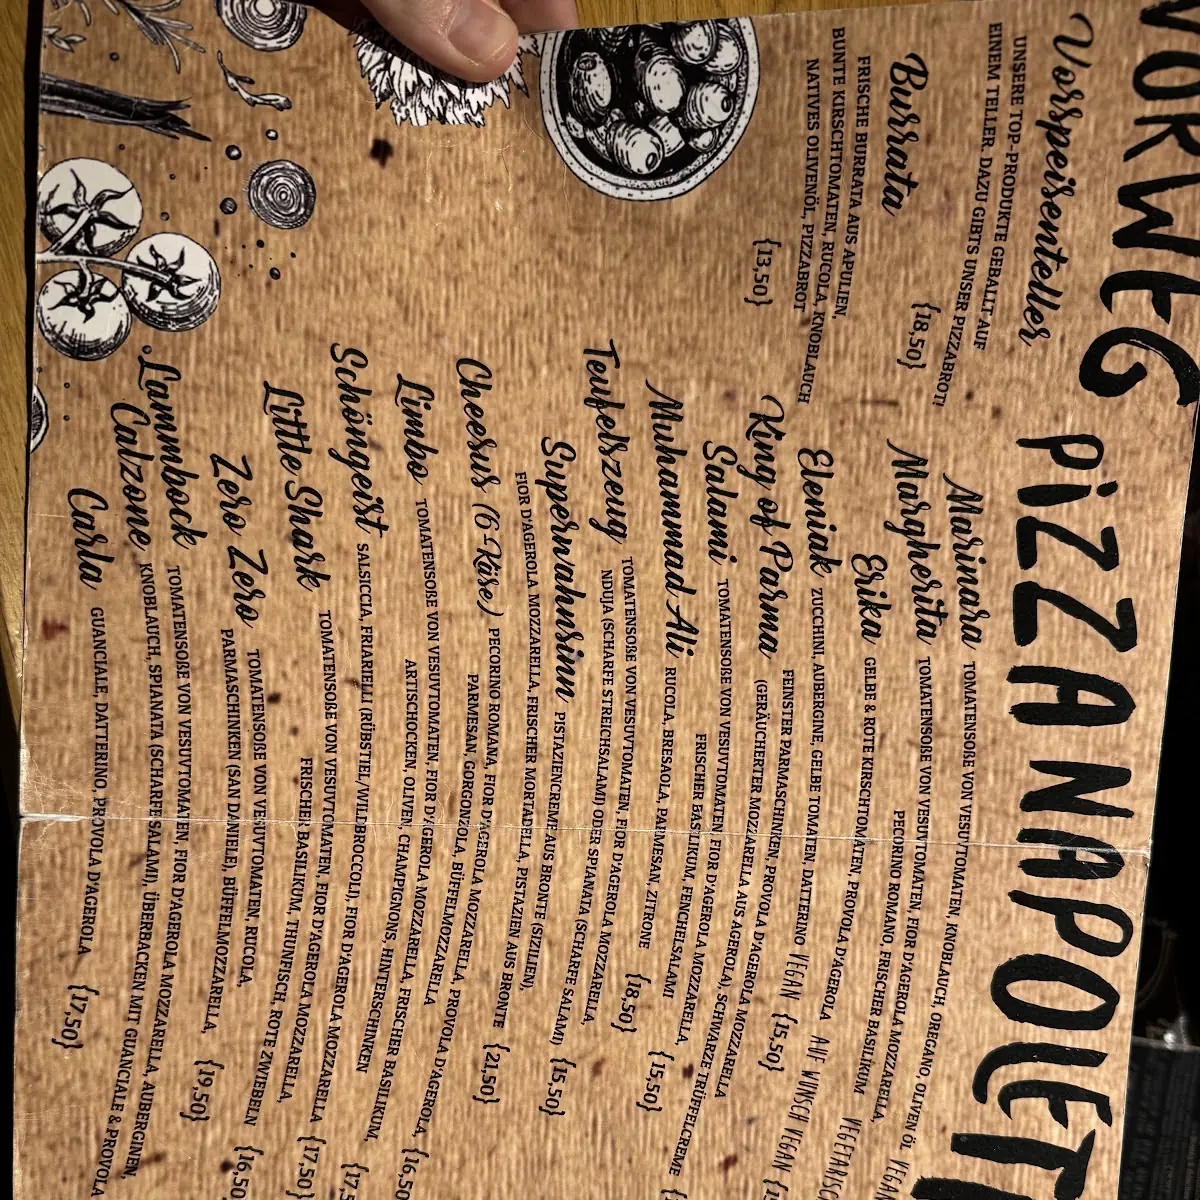 VORWEG
Vorspeisenteller
UNSERE TOP-PRODUKTE GEBALLT AUF
EINEM TELLER. DAZU GIBTS UNSER PIZZABROT!
{18,50}
Burrata
FRISCHE BURRATA AUS APULIEN,
BUNTE KIRSCHTOMATEN, RUCOLA, KNOBLAUCH
NATIVES OLIVENÖL, PIZZABROT
{13,50}
PIZZA NAPOLET
Marinara TOMATENSOßE VON VESUVTOMATEN, KNOBLAUCH, OREGANO, OLIVEN ÖL VEGAN
Margherita TOMATENSOßE VON VESUVTOMATEN, FIOR D'AGEROLA MOZZARELLA,
PECORINO ROMANO, FRISCHER BASILIKUM VEGETARISC
Erika GELBE & ROTE KIRSCHTOMATEN, PROVOLA D'AGEROLA AUF WUNSCH VEGAN
Eleniak ZUCCHINI, AUBERGINE, GELBE TOMATEN, DATTERINO VEGAN {15,50}
King of Parma FEINSTER PARMASCHINKEN, PROVOLA D'AGEROLA MOZZARELLA
(GERÄUCHERTER MOZZARELLA AUS AGEROLA), SCHWARZE TRÜFFELCREME
Salami TOMATENSOßE VON VESUVTOMATEN FIOR D'AGEROLA MOZZARELLA,
FRISCHER BASILIKUM, FENCHELSALAMI {15,50}
Muhammad Ali RUCOLA, BRESAOLA, PARMESAN, ZITRONE {18,50}
Teufelszeug TOMATENSOßE VON VESUVTOMATEN, FIOR D'AGEROLA MOZZARELLA,
NDUJA (SCHARFE STREICHSALAMI) ODER SPIANATA (SCHARFE SALAMI) {15,50}
Supernahnsinn PISTAZIENCREME AUS BRONTE (SIZILIEN),
FIOR D'AGEROLA MOZZARELLA, FRISCHER MORTADELLA, PISTAZIEN AUS BRONTE {21,50}
Cheesus (6-Käse) PECORINO ROMANA, FIOR D'AGEROLA MOZZARELLA, PROVOLA D'AGEROLA,
PARMESAN, GORGONZOLA, BÜFFELMOZZARELLA {16,50
Limbo TOMATENSOßE VON VESUVTOMATEN, FIOR D'AGEROLA MOZZARELLA, FRISCHER BASILIKUM,
ARTISCHOCKEN, OLIVEN, CHAMPIGNONS, HINTERSCHINKEN {17,5
Schöngeist SALSICCIA, FRIARIELLI (RÜBSTIEL/WILDBROCCOLI), FIOR D'AGEROLA MOZZARELLA {17,50}
Little Shark TOMATENSOßE VON VESUVTOMATEN, FIOR D'AGEROLA MOZZARELLA,
FRISCHER BASILIKUM, THUNFISCH, ROTE ZWIEBELN {16,50
Zero Zero TOMATENSOßE VON VESUVTOMATEN, RUCOLA,
PARMASCHINKEN (SAN DANIELE), BÜFFELMOZZARELLA, {19,50}
Lammbock Calzone TOMATENSOßE VON VESUVTOMATEN, FIOR D'AGEROLA MOZZARELLA, AUBERGINEN,
KNOBLAUCH, SPIANATA (SCHARFE SALAMI), ÜBERBACKEN MIT GUANCIALE & PROVOLA
Carla GUANCIALE, DATTERINO, PROVOLA D'AGEROLA {17,50}